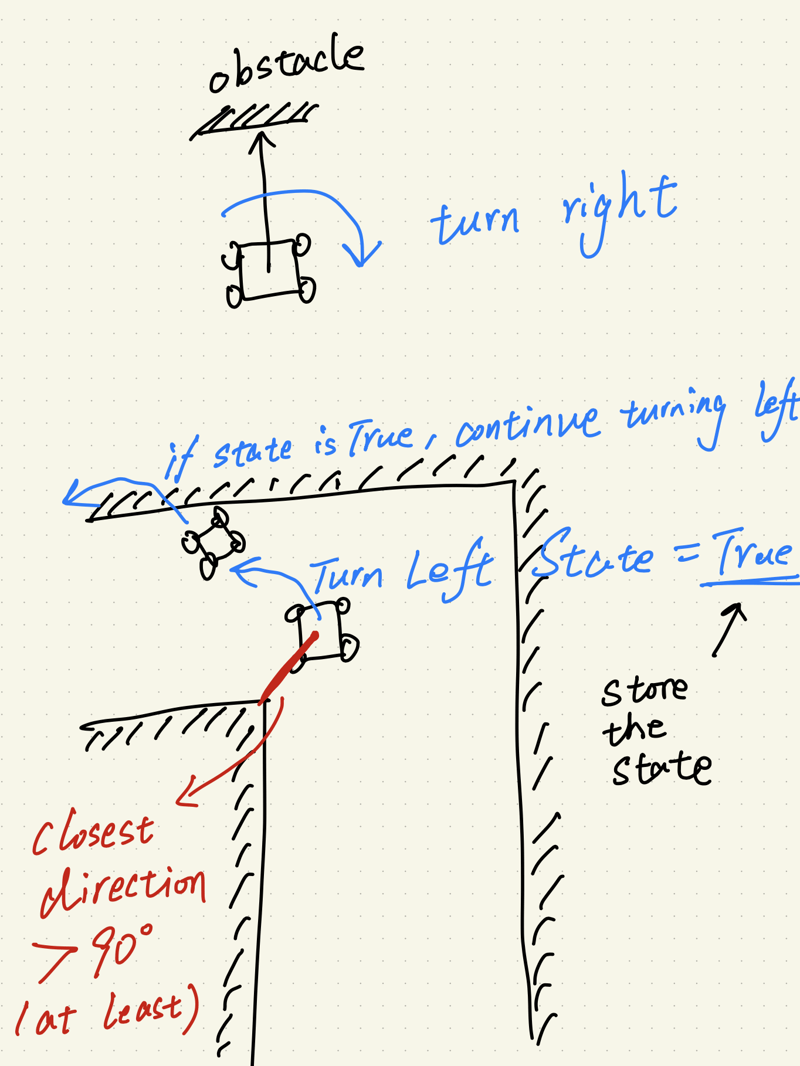 obstacle
turn right
if state is True, continue turning left
Turn Left State = True
store
the
state
closest
direction
> 90°
(at least)